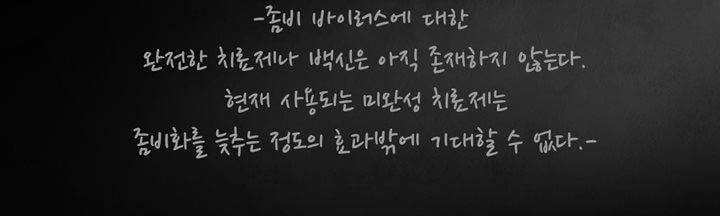 -좀비 바이러스에 대한
완전한 치료제나 백신은 아직 존재하지 않는다.
현재 사용되는 미완성 치료제는
좀비화를 늦추는 정도의 효과밖에 기대할 수 없다.-